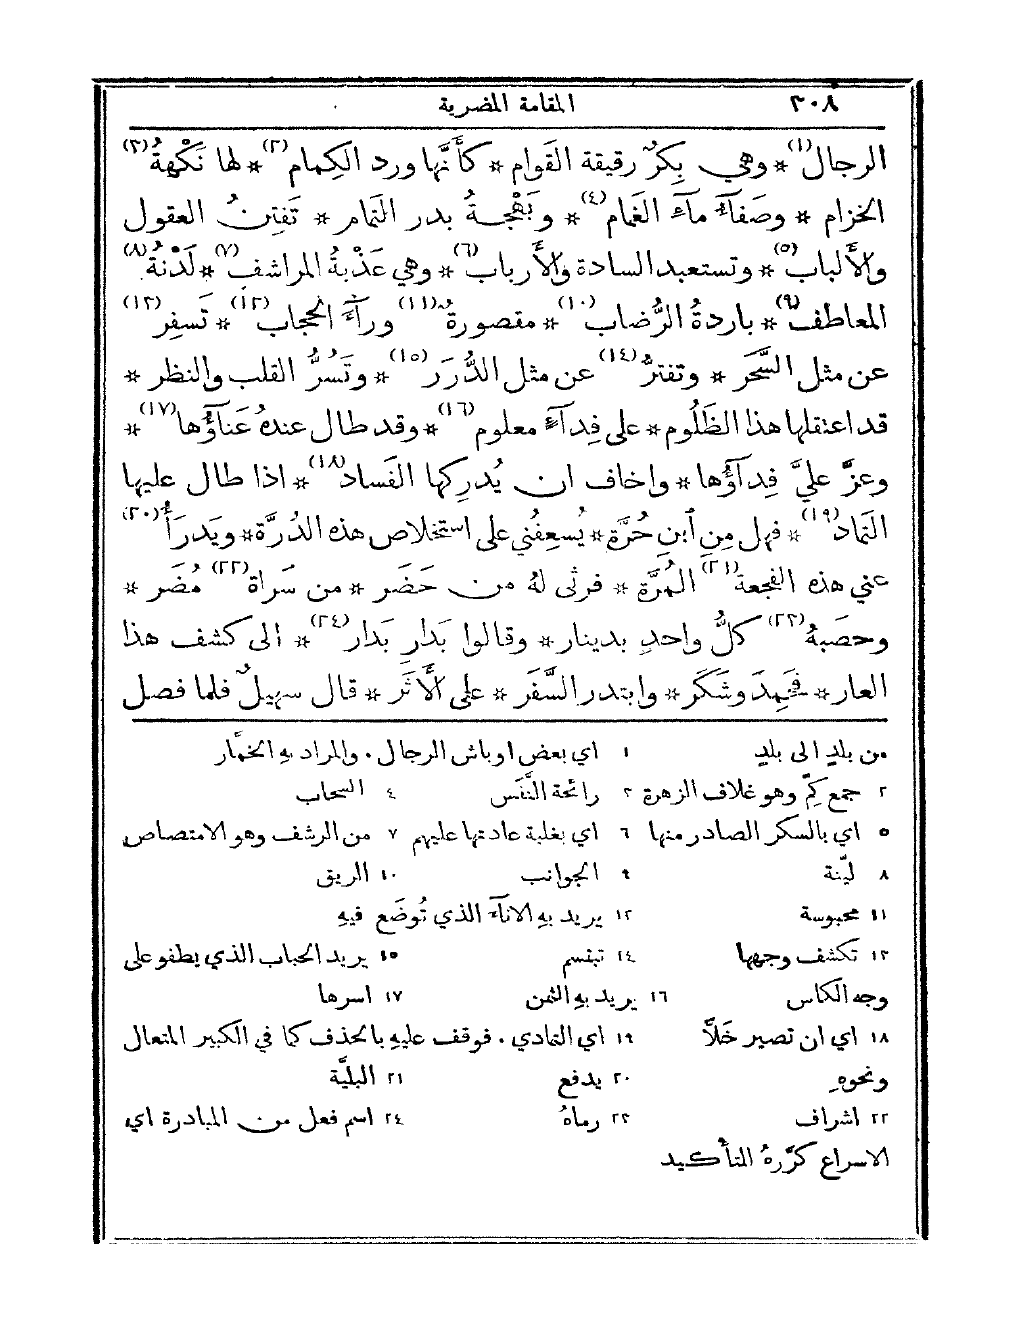 ٣٠٨ المقامة المضرية
الرجال(١)* وهي بِكرٌ رقيقة القَوام * كأَنَّها ورد الكِمام(٢)* لها نَكْهةُ(٣)
الخزام * وصَفآءُ مآءِ الغَمام(٤)* وبَهْجةُ بدر التمام * تَفتِنُ العقول
والأَلباب(٥)* وتستعبد السادة والأَرباب(٦)* وهي عَذْبةُ المراشف(٧)* لَدْنةُ(٨)
المعاطف(٩)* باردةُ الرُّضاب(١٠)* مقصورةٌ(١١) ورآءَ الحجاب(١٢)* تَسفِر(١٣)
عن مثل السَّحَر * وتفترُّ(١٤) عن مثل الدُّرَر(١٥)* وتَسُرُّ القلب والنظر *
قد اعتقلها هذا الظَلُوم* على فِدآءٍ معلوم(١٦)* وقد طال عندهُ عَنآؤُها(١٧)*
وعزَّ عليَّ فِدآؤُها* واخاف ان يُدرِكها الفَساد(١٨)* اذا طال عليها
التماد(١٩)* فهل مِنِ ٱبنِ حُرَّة* يُسعِفُني على استخلاص هذه الدُرَّة* ويَدرَأُ(٢٠)
عني هذه الفجعة(٢١) المُرَّة * فرثى لهُ من حَضَر * من سَراة(٢٢) مُضَر *
وحصَبهُ(٢٣) كلُّ واحدٍ بدينار* وقالوا بَدَارِ بَدَار(٢٤)* الى كشف هذا
العار* فحَمِدَ وشَكَر* وابتدر السَّفَر* على الأَثَر* قال سهيلٌ فلما فصل
من بلدٍ الى بلدٍ ١ اي بعض اوباش الرجال. والمراد بهِ الخمَّار
٢ جمع كِمّ وهو غلاف الزهرة ٣ رائحة النَّفَس ٤ السحاب
٥ اي بالسكر الصادر منها ٦ اي بغلبة عادتها عليهم ٧ من الرشف وهو الامتصاص
٨ ليّنة ٩ الجوانب ١٠ الريق
١١ محبوسة ١٢ يريد بهِ الانآءَ الذي تُوضَع فيهِ
١٣ تكشف وجهها ١٤ تبتسم ١٥ يريد الحباب الذي يطفو على
وجه الكاس ١٦ يريد بهِ الثمن ١٧ اسرها
١٨ اي ان تصير خَلاًّ ١٩ اي التمادي. فوقف عليهِ بالحذف كما في الكبير المتعال
ونحوهِ ٢٠ يدفع ٢١ البليَّة
٢٢ اشراف ٢٣ رماهُ ٢٤ اسم فعل من المبادرة اي
الاسراع كرَّرهُ للتأكيد